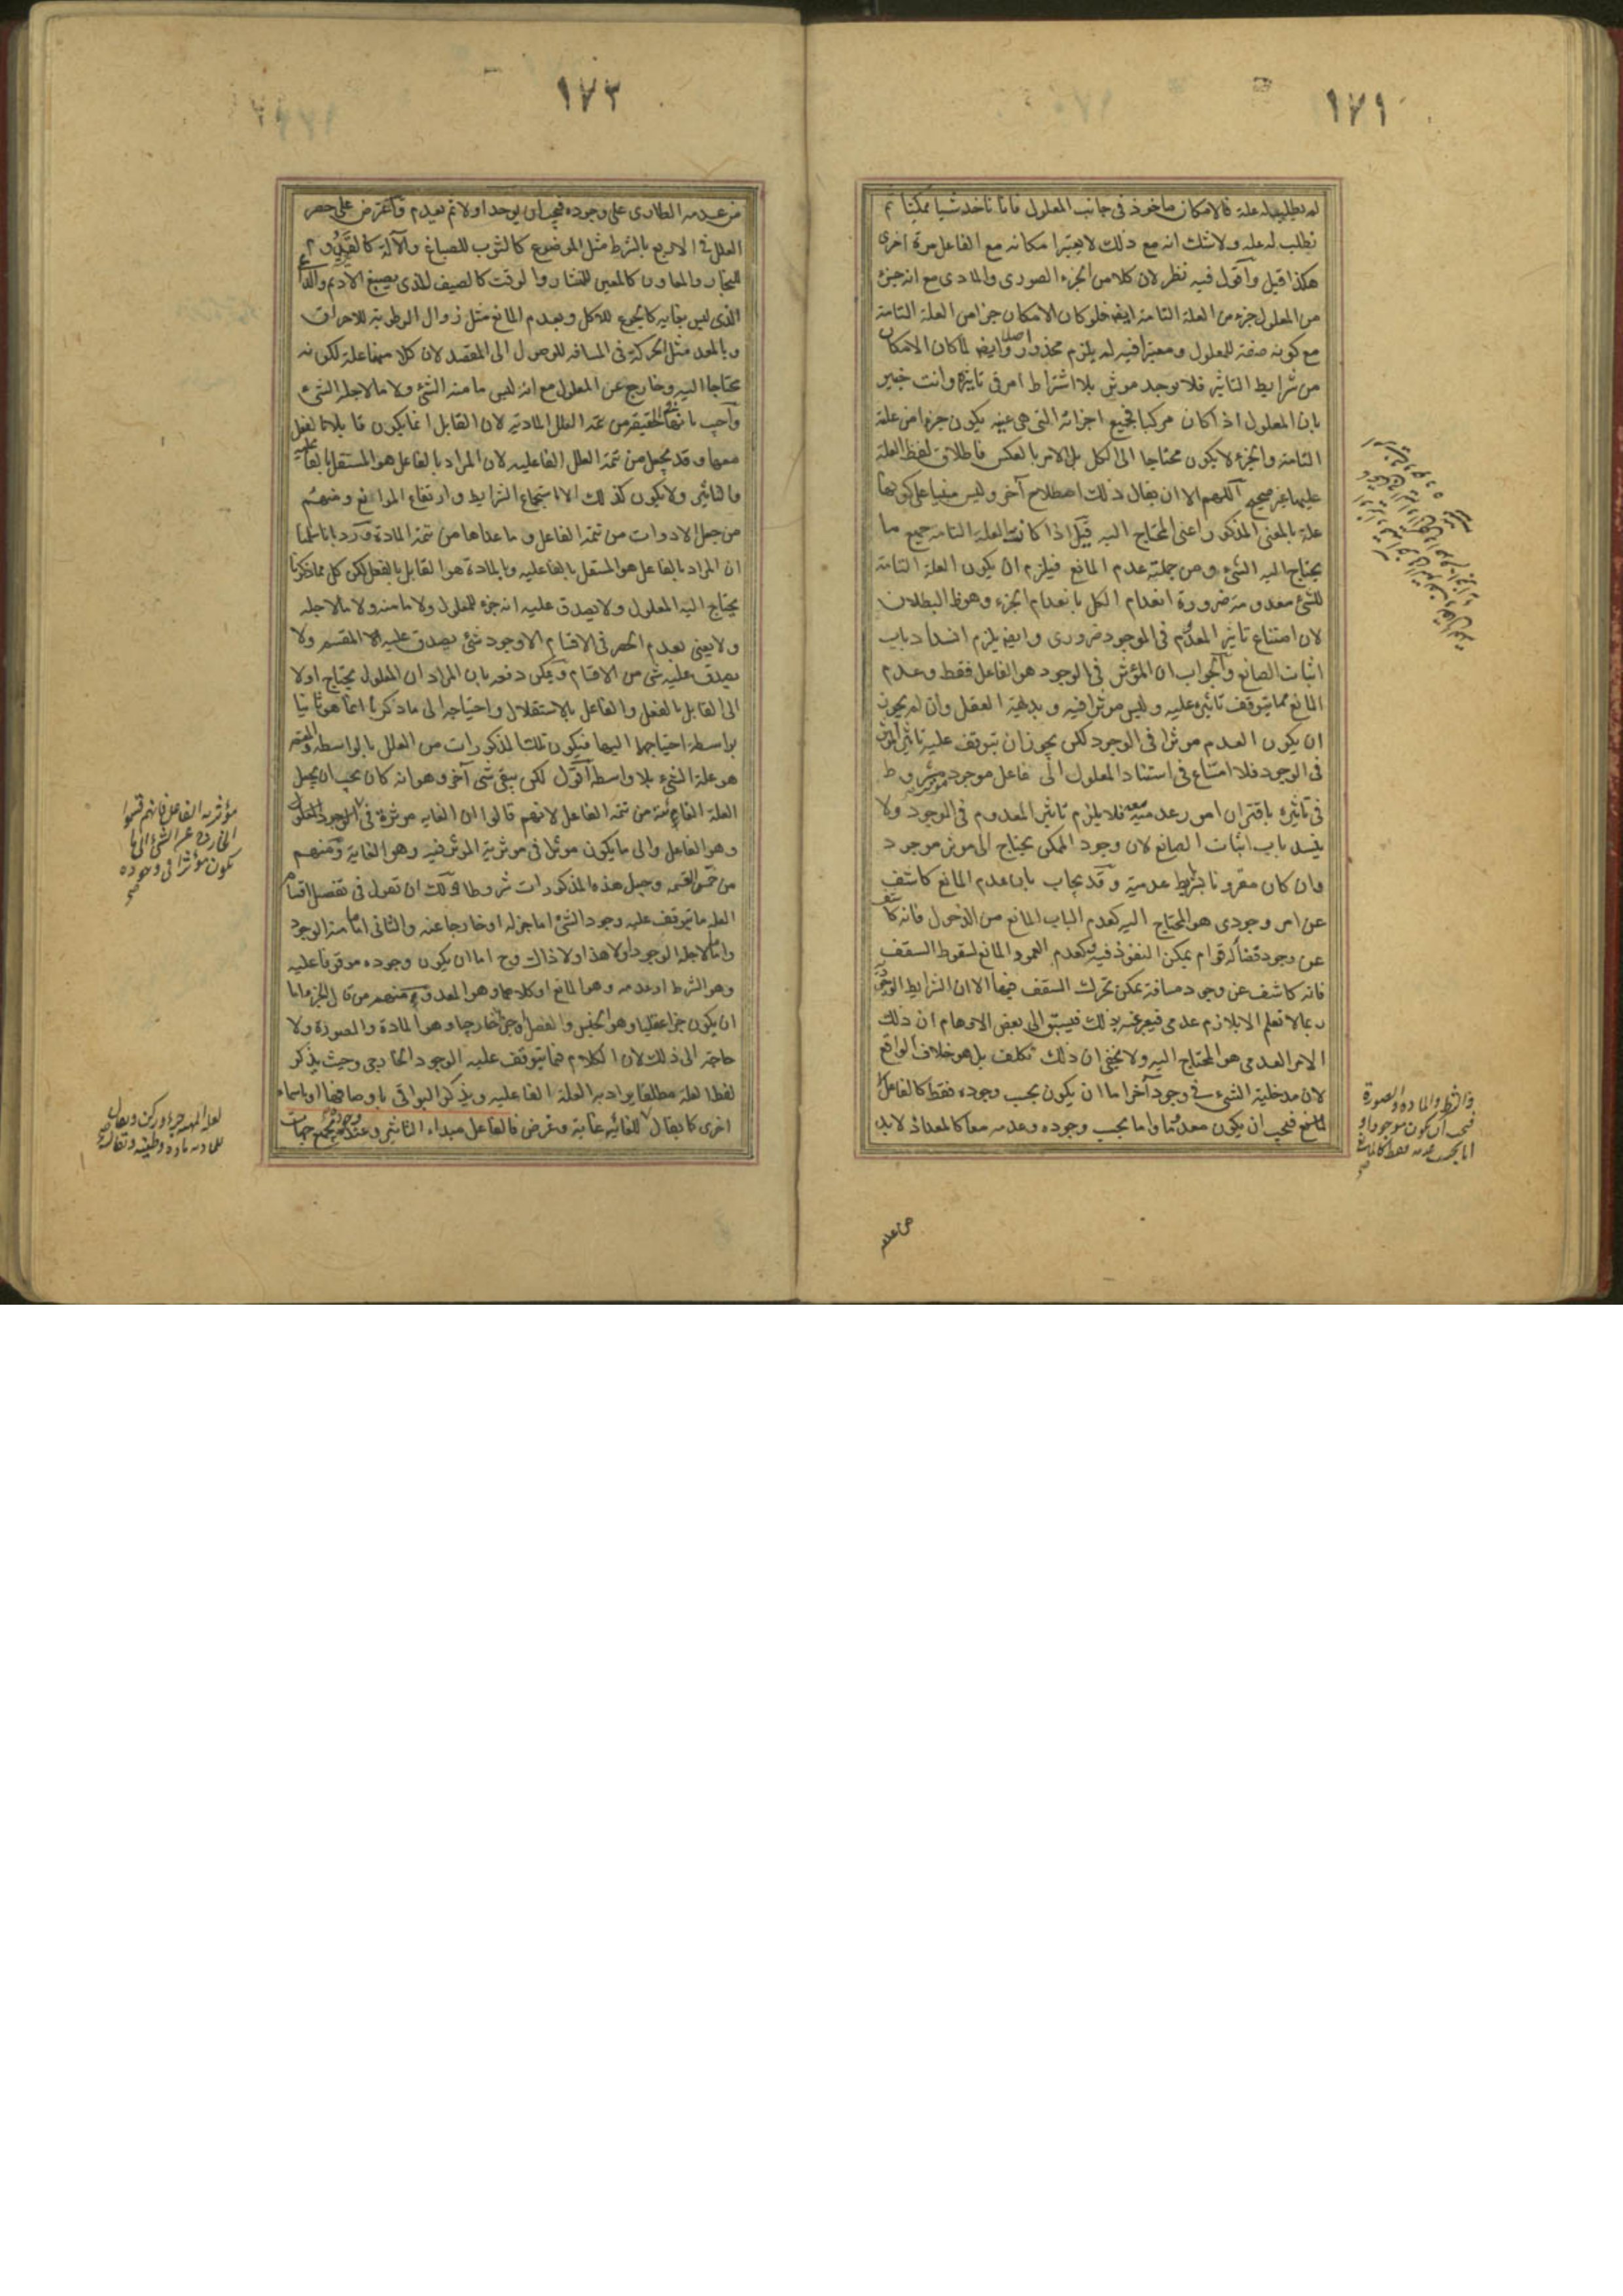 ١٧١
له يطلب له علة فالامكان ماخوذ فى جانب المعلول فانا ناخذ شيأ ممكنا ثم
نطلب له علة ولا شك انه مع ذلك لا يعتبر امكانه مع الفاعل مرة اخرى
هكذا قيل وآقول فيه نظر لان كلا من الجزء الصورى والمادى مع انه جزء
من المعلول جزء من العلة التامة ايضا فلو كان الامكان جزأ من العلة التامة
مع كونه صفة للمعلول ومعتبرا فيه لم يلزم محذور اصلا وايضا لما كان الامكان
من شرايط التاثير فلا يوجد موثر بلا اشتراط امر فى تاثيره وانت خبير
بان المعلول اذا كان مركبا فجميع اجزائه التى هى عينه يكون جزء من علة
التامة والجزء لا يكون محتاجا الى الكل بل الامر بالعكس فاطلاق لفظ العلة
عليها غير صحيح اللهم الا ان يقال ذلك اصطلاح آخر وليس مبنيا على كونها
علة بالمعنى المذكور اعنى المحتاج اليه قيل اذا كانت العلة التامة جميع ما
يحتاج اليه الشىء ومن جملته عدم المانع فيلزم ان يكون العلة التامة
للشئ معدومة ضرورة انعدام الكل بانعدام الجزء وهو ظ البطلان
لان امتناع تاثير المعدوم فى الموجود ضرورى وايضا يلزم انسداد باب
اثبات الصانع والجواب ان المؤثر فى الوجود هو الفاعل فقط وعدم
المانع مما يتوقف تاثيره عليه وليس موثرا فيه وبديهة العقل وان لم يجوز
ان يكون العدم موثرا فى الوجود لكن يجوز ان يتوقف عليه تاثير المؤثر
فى الوجود فلا امتناع فى استناد المعلول الى فاعل موجود مشروط
فى تاثيره باقتران امور عدمية معه فلا يلزم تاثير المعدوم فى الوجود ولا
يفسد باب اثبات الصانع لان وجود الممكن يحتاج الى موثر موجود
وان كان مقرونا بشرايط عدمية وقد يجاب بان عدم المانع كاشف
عن امر وجودى هو المحتاج اليه كعدم الباب المانع من الدخول فانه كاشف
عن وجود فضاء له قوام يمكن النفوذ فيه وكعدم العمود المانع لسقوط السقف
فانه كاشف عن وجود مسافة يمكن تحرك السقف فيها الا ان الشرايط الوجودية
ربما لا تعلم الا بلازم عدمى فيعبر عنه بذلك فيسبق الى بعض الاوهام ان ذلك
الامر العدمى هو المحتاج اليه ولا يخفى ان ذلك تكلف بل هو خلاف الواقع
لان مدخلية الشىء فى وجود آخر اما ان يكون بحسب وجوده فقط كالفاعل
المانع فيجب ان يكون معدوما واما بحسب وجوده وعدمه معا كالمعد اذ لا بد
والشرط والمادة والصورة
فيجب ان يكون موجودا و
اما بحسب عدمه فقط كالمانع
من عدمه
١٧٢
من عدمه الطارى على وجوده فيجب ان يوجد اولا ثم يعدم واعترض على حصر
العلل فى الاربع بالشرط مثل الموضوع كالثوب للصباغ والآلة كالقدوم
للنجار والمعاون كالمعين للمنشار والوقت كالصيف للذى يصبغ الاديم والداعى
الذى ليس بغاية كالجوع للاكل وبعدم المانع مثل زوال الرطوبة للاحراق
وبالمعد مثل الحركة فى المسافة للوصول الى المقصد لان كلا منها علة لكونه
محتاجا اليه وخارج عن المعلول مع انه ليس ما منه الشئ ولا ما لاجله الشئ
وآجيب بانها فى الحقيقة من تتمة العلل المادية لان القابل انما يكون قابلا بالفعل
معها وقد يجعل من تتمة العلل الفاعلية لان المراد بالفاعل هو المستقل بالفاعلية
والتاثير ولا يكون كذلك الا باستجماع الشرايط وارتفاع الموانع ومنهم
من جعل الادوات من تتمة الفاعل وما عداها من تتمة المادة ورد بانا سلمنا
ان المراد بالفاعل هو المستقل بالفاعلية وبالمادة هو القابل بالفعل لكن كل مما ذكرنا
يحتاج اليه المعلول ولا يصدق عليه انه جزء للمعلول ولا ما منه ولا ما لاجله
ولا يعنى بعدم الحصر فى الاقسام الا وجود شئ يصدق عليه المقسم ولا
يصدق عليه شئ من الاقسام ويمكن دفعه بان المراد ان المعلول يحتاج اولا
الى القابل بالفعل والفاعل بالاستقلال واحتياجه الى ما ذكرنا انما هو ثانيا
بواسطة احتياجهما اليها فيكون تلك المذكورات من العلل بالواسطة والمقسم
هو علة الشئ بلا واسطة آقول لكن يبقى شئ آخر وهو انه كان يجب ان يجعل
العلة الغائية من تتمة الفاعل لانهم قالوا ان الغاية موثرة فى الوجود المعلول
وهو الفاعل والى ما يكون موثرا فى موثرية الموثر فيه وهو الغاية ومنهم
من خمس القسمة وجعل هذه المذكورات شروطا ولك ان تقول فى تفصيل اقسام
العلة ما يتوقف عليه وجود الشئ اما جزء له او خارجا عنه والثانى اما ما منه الوجود
واما ما لاجله الوجود او لا هذا ولا ذاك وح اما ان يكون وجوده موقوفا عليه
وهو الشرط او عدمه وهو المانع او كلاهما وهو المعد ومنهم من قال الجزء اما
ان يكون جزأ عقليا وهو الجنس والفصل او جزأ خارجيا وهو المادة والصورة ولا
حاجة الى ذلك لان الكلام فيما يتوقف عليه الوجود الخارجى وحيث يذكر
لفظ العلة مطلقا يراد به العلة الفاعلية ويذكر البواقى باوصافها او باسماء
اخرى كما يقال للغائية غاية وغرض فالفاعل مبداء التاثير وعند وجوده بجميع جهات
مؤثرية الفاعل فانهم قسموا
الخارج عن الشئ الى ما
يكون مؤثرا فى وجوده
صح